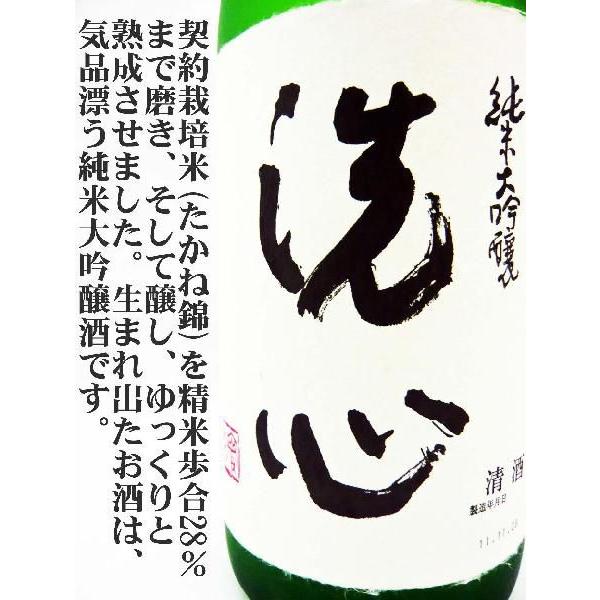 契約栽培米(たかね錦)を精米歩合28%
まで磨き、そして醸し、ゆっくりと
熟成させました。生まれ出たお酒は、
気品漂う純米大吟醸酒です。
純米大吟醸
洗心
清酒
製造年月日